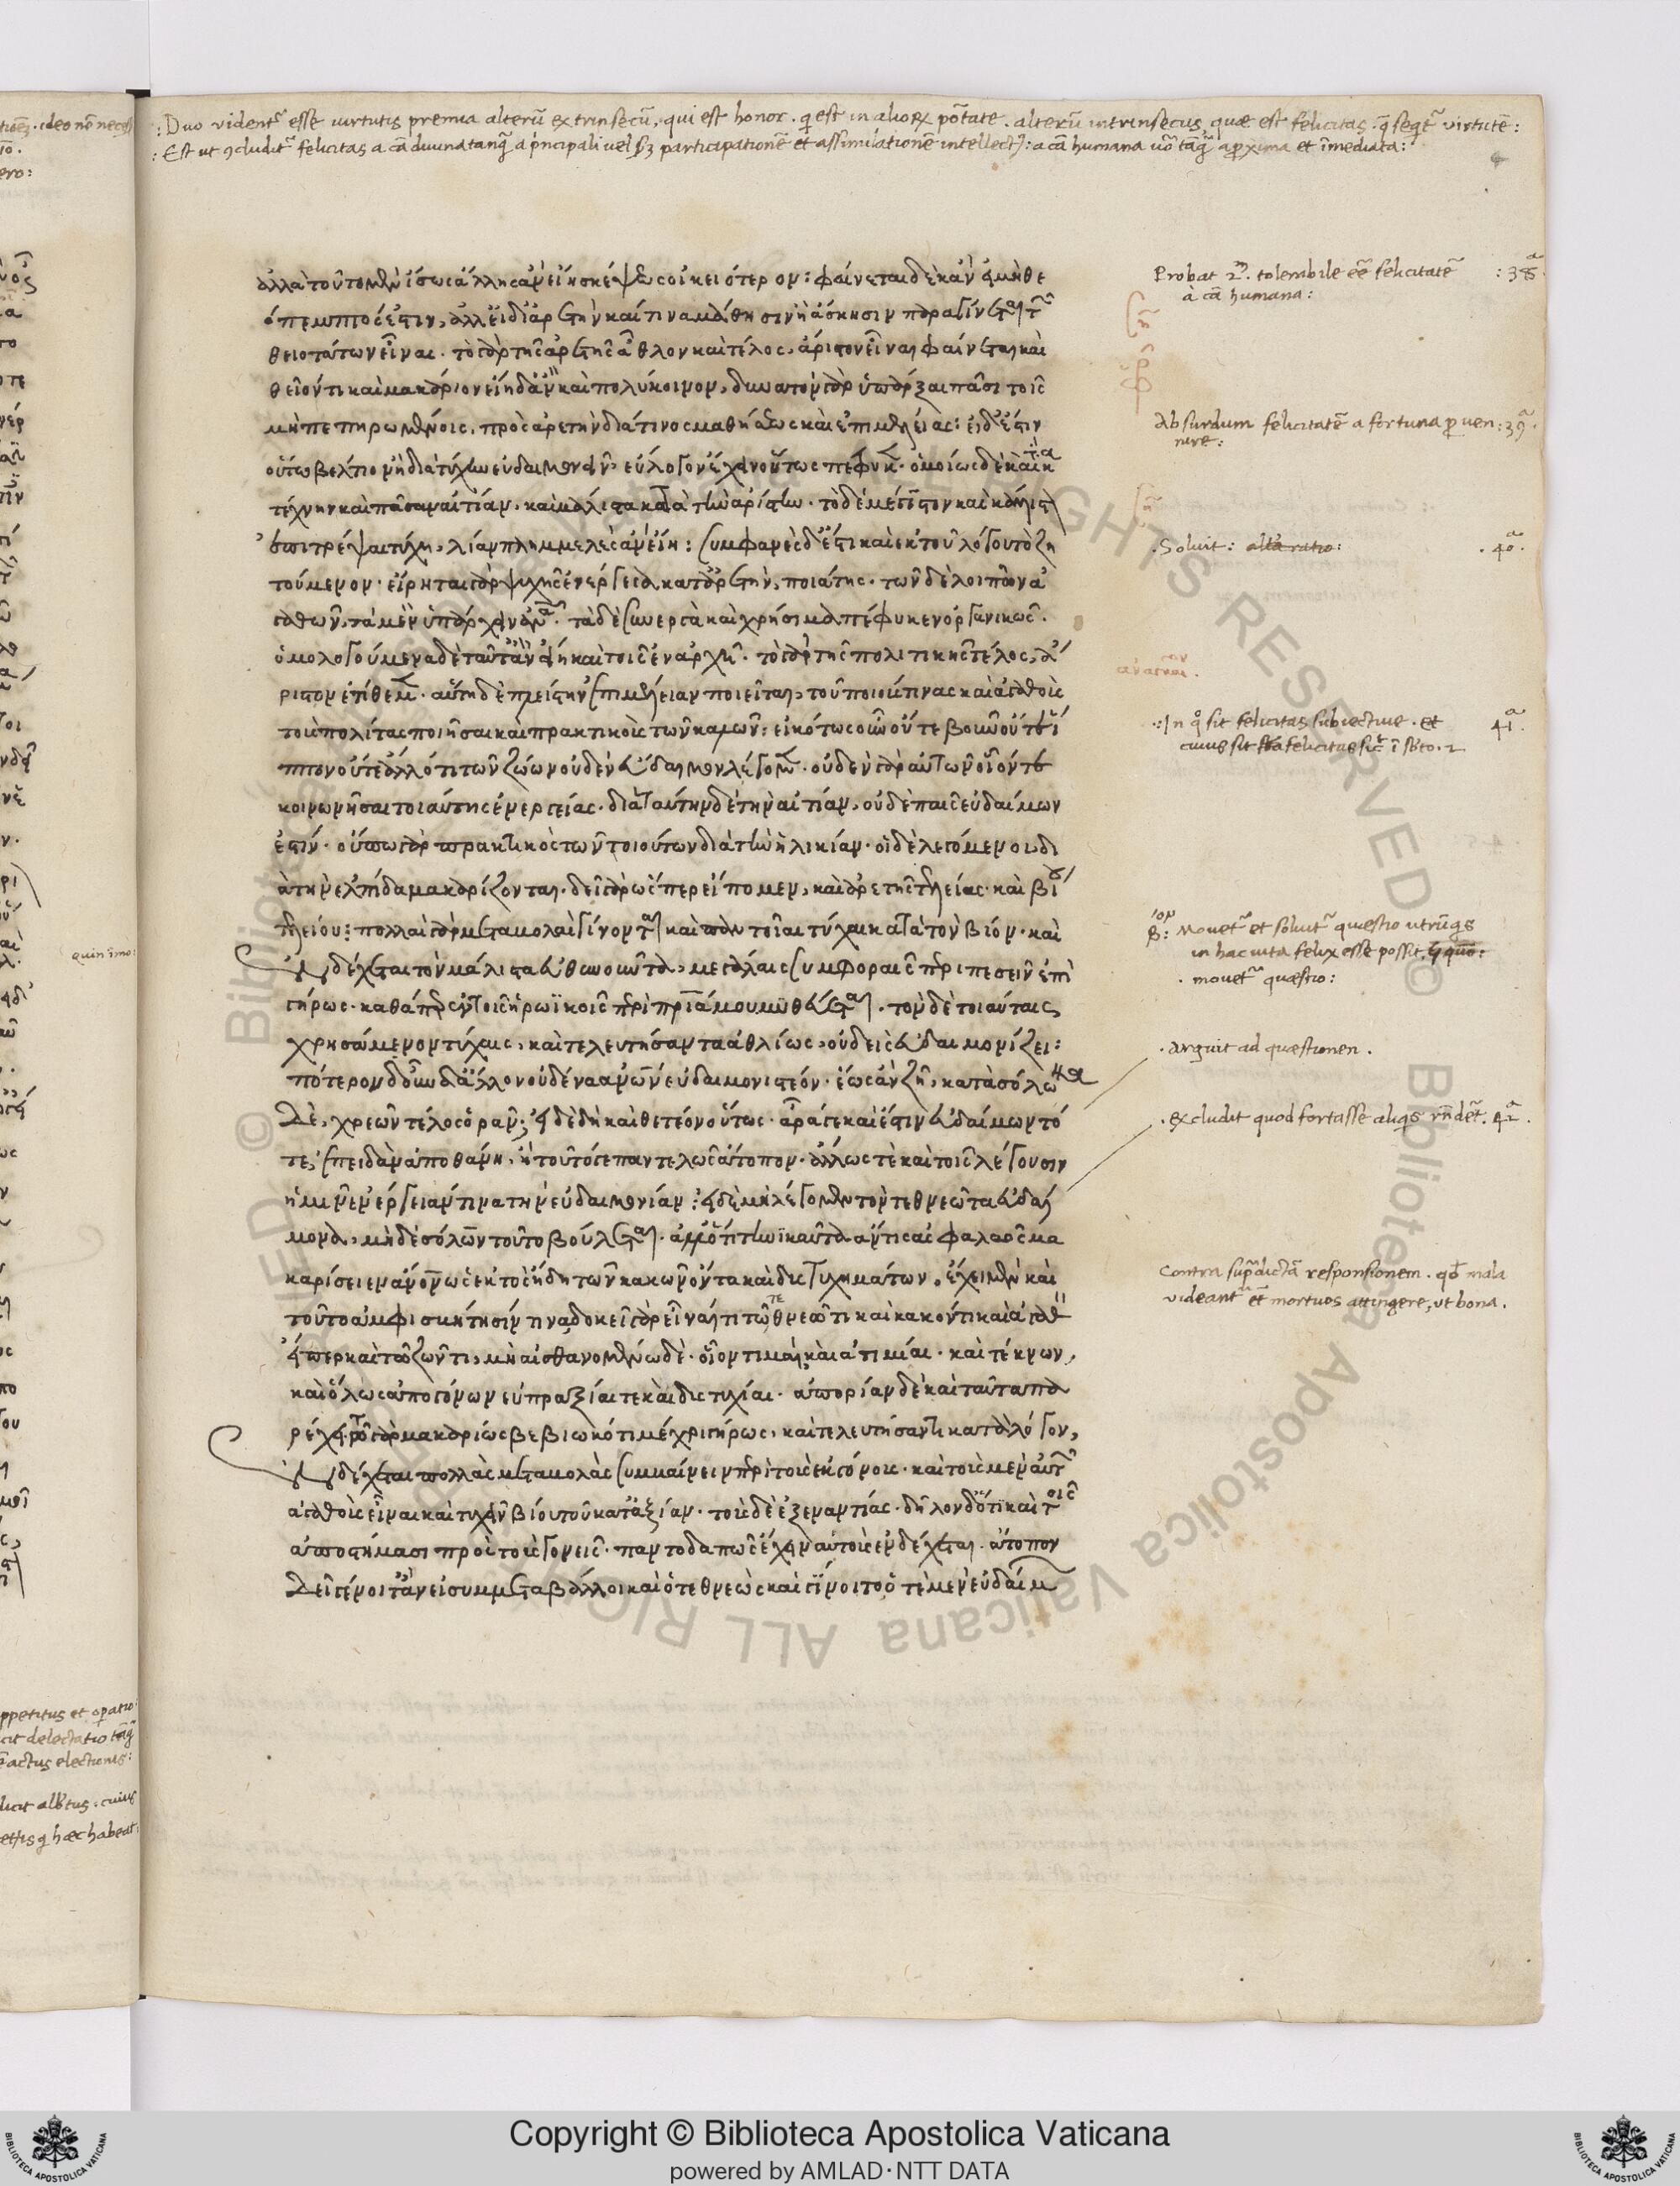 : Duo vident᷑ esse virtutis premia alterū extrinsecū, qui est honor. q̇ est in alioꝝ põtate. alterū intrinsecus, quae est felicitas, q̃ seqt᷑ virtutē:
: Est ut ꝯcludit᷑ felicitas a cā diuina tanq̃ a principali uel ꝑ participationē et assimilationē intellectꝰ: a cā humana uõ tãq̃ a ꝓxima et īmediata:
ἀλλὰ τοῦτο μὲν ἴσως ἄλλης ἂν εἴη σκέψεως οἰκειότερον: φαίνεται δὲ κἂν εἰ μὴ θε
όπεμπτός ἐστιν, ἀλλ' εἰ δι' ἀρετὴν καί τινα μάθησιν ἢ ἄσκησιν παραγίνεται τῶν
θειοτάτων εἶναι. τὸ γὰρ τῆς ἀρετῆς ἆθλον καὶ τέλος, ἄριστον εἶναι φαίνεται καὶ
θεῖόν τι καὶ μακάριον εἴη δ' ἂν καὶ πολύκοινον, δυνατὸν γὰρ ὑπάρξαι πᾶσι τοῖς
μὴ πεπηρωμένοις, πρὸς ἀρετὴν διά τινος μαθήσεως καὶ ἐπιμελείας: εἰ δ' ἐστὶν
οὕτω βέλτιον ἢ διὰ τύχην εὐδαιμονεῖν, εὔλογον ἔχειν οὕτως πέφυκε. ὁμοίως δὲ καὶ τὰ κατὰ
τέχνην καὶ πᾶσαν αἰτίαν. καὶ μάλιστα κατὰ τὴν ἀρίστην. τὸ δὲ μέγιστον καὶ κάλλιστον
ἐπιτρέψαι τύχῃ, λίαν πλημμελὲς ἂν εἴη: συμφανὲς δ' ἐστὶ καὶ ἐκ τοῦ λόγου τὸ ζη
τούμενον. εἴρηται γὰρ ψυχῆς ἐνέργεια κατ' ἀρετὴν, ποιά τις. τῶν δὲ λοιπῶν ἀ
γαθῶν, τὰ μὲν ὑπάρχειν ἀναγκαῖον. τὰ δὲ συνεργὰ καὶ χρήσιμα πέφυκεν ὀργανικῶς.
ὁμολογούμενα δὲ ταῦτ' ἂν εἴη καὶ τοῖς ἐν ἀρχῇ. τὸ γὰρ τῆς πολιτικῆς τέλος, ἄ
ριστον ἐτίθεμεν. αὕτη δὲ πλείστην ἐπιμέλειαν ποιεῖται, τοῦ ποιούς τινας καὶ ἀγαθοὺς
τοὺς πολίτας ποιῆσαι καὶ πρακτικοὺς τῶν καλῶν: εἰκότως οὖν οὔτε βοῦν οὔτε ἵ
ππον οὔτε ἄλλό τι τῶν ζώων οὐδὲν εὔδαιμον λέγομεν. οὐδὲν γὰρ αὐτῶν οἷόν τε
κοινωνῆσαι τοιαύτης ἐνεργείας. διὰ ταύτην δὲ τὴν αἰτίαν, οὐδὲ παῖς εὐδαίμων
ἐστίν. οὔπω γὰρ πρακτικὸς τῶν τοιούτων διὰ τὴν ἡλικίαν. οἱ δὲ λεγόμενοι, δι
ὰ τὴν ἐλπίδα μακαρίζονται. δεῖ γὰρ ὥσπερ εἴπομεν, καὶ ἀρετῆς τελείας. καὶ βίου
τελείου: πολλαὶ γὰρ μεταβολαὶ γίνονται καὶ παντοῖαι τύχαι κατὰ τὸν βίον. καὶ
ἐνδέχεται τὸν μάλιστα εὐθηνοῦντα, μεγάλαις συμφοραῖς περιπεσεῖν ἐπὶ
γήρως. καθάπερ ἐν τοῖς ἡρωϊκοῖς περὶ πριάμου μυθεύεται. τὸν δὲ τοιαύταις
χρησάμενον τύχαις, καὶ τελευτήσαντα ἀθλίως, οὐδεὶς εὐδαιμονίζει:
πότερον δ' οὖν οὐδ' ἄλλον οὐδένα ἀνθρώπων εὐδαιμονιστέον. ἕως ἂν ζῇ, κατὰ σόλωνα
δὲ, χρεὼν τέλος ὁρᾶν; εἰ δὲ δὴ καὶ θετέον οὕτως. ἆρά γε καὶ ἔστιν εὐδαίμων τό
τε, ἐπειδὰν ἀποθάνῃ, ἢ τοῦτό γε παντελῶς ἄτοπον. ἄλλως τὲ καὶ τοῖς λέγουσιν
ἡμῖν ἐνέργειάν τινα τὴν εὐδαιμονίαν: εἰ δὲ μὴ λέγομεν τὸν τεθνεῶτα εὐδαί
μονα, μὴ δὲ σόλων τοῦτο βούλεται. ἀλλ' ὅτι τηνικαῦτα ἄν τις ἀσφαλῶς μα
καρίσειεν ἄνθρωπον ὡς ἐκτὸς ἤδη τῶν κακῶν ὄντα καὶ δυστυχημάτων, ἔχει μὲν καὶ
τοῦτο ἀμφισβήτησίν τινα, δοκεῖ γὰρ εἶναί τι τῷ τεθνεῶτι καὶ κακόν τι καὶ ἀγαθὸν
εἴπερ καὶ τῷ ζῶντι, μὴ αἰσθανομένῳ δὲ. οἷον τιμαὶ καὶ ἀτιμίαι. καὶ τέκνων,
καὶ ὅλως ἀπογόνων εὐπραξίαι τε καὶ δυστυχίαι. ἀπορίαν δὲ καὶ ταῦτα πα
ρέχει. τῷ γὰρ μακαρίως βεβιωκότι μέχρι γήρως, καὶ τελευτήσαντι κατὰ λόγον,
ἐνδέχεται πολλὰς μεταβολὰς συμβαίνειν περὶ τοὺς ἐκγόνους. καὶ τοὺς μὲν αὐτῶν
ἀγαθοὺς εἶναι καὶ τυχεῖν βίου τοῦ κατ' ἀξίαν. τοὺς δὲ ἐξ ἐναντίας. δῆλον δ' ὅτι καὶ τοῖς
ἀποστήμασι πρὸς τοὺς γονεῖς. παντοδαπῶς ἔχειν αὐτοὺς ἐνδέχεται. ἄτοπον
δεῖ γένοιτ' ἂν εἰ συμμεταβάλλοι καὶ ὁ τεθνεὼς καὶ γίνοιτο ὁτὲ μὲν εὐδαίμων
Probat 2m. tolerabile eē felicitatē : 38a.
à cā humana:
Absurdum felicitatē a fortuna ꝓuen : 39a.
nire:
. Soluit: alia ratio: . 40a.
.: In q° sit felicitas subiectiue. et 41a.
cuius sit
Mouet᷑ et soluit᷑ quaestio utrū quis
in hac uita felix esse possit
. mouet᷑ quaestio:
. arguit ad quaestionem.
. excludit quod fortasse aliqs rñdet. 42a.
Contra supradictā responsionem. qd mala
videant᷑ et mortuos attingere, ut bona.
quin imo:
ppetitus et opatio
delectatio tãq̃
actus electionis:
hec habeat:
Copyright © Biblioteca Apostolica Vaticana
powered by AMLAD·NTT DATA
BIBLIOTECA APOSTOLICA VATICANA
BIBLIOTECA APOSTOLICA VATICANA
Biblioteca Apostolica Vaticana ALL RIGHTS RESERVED ©